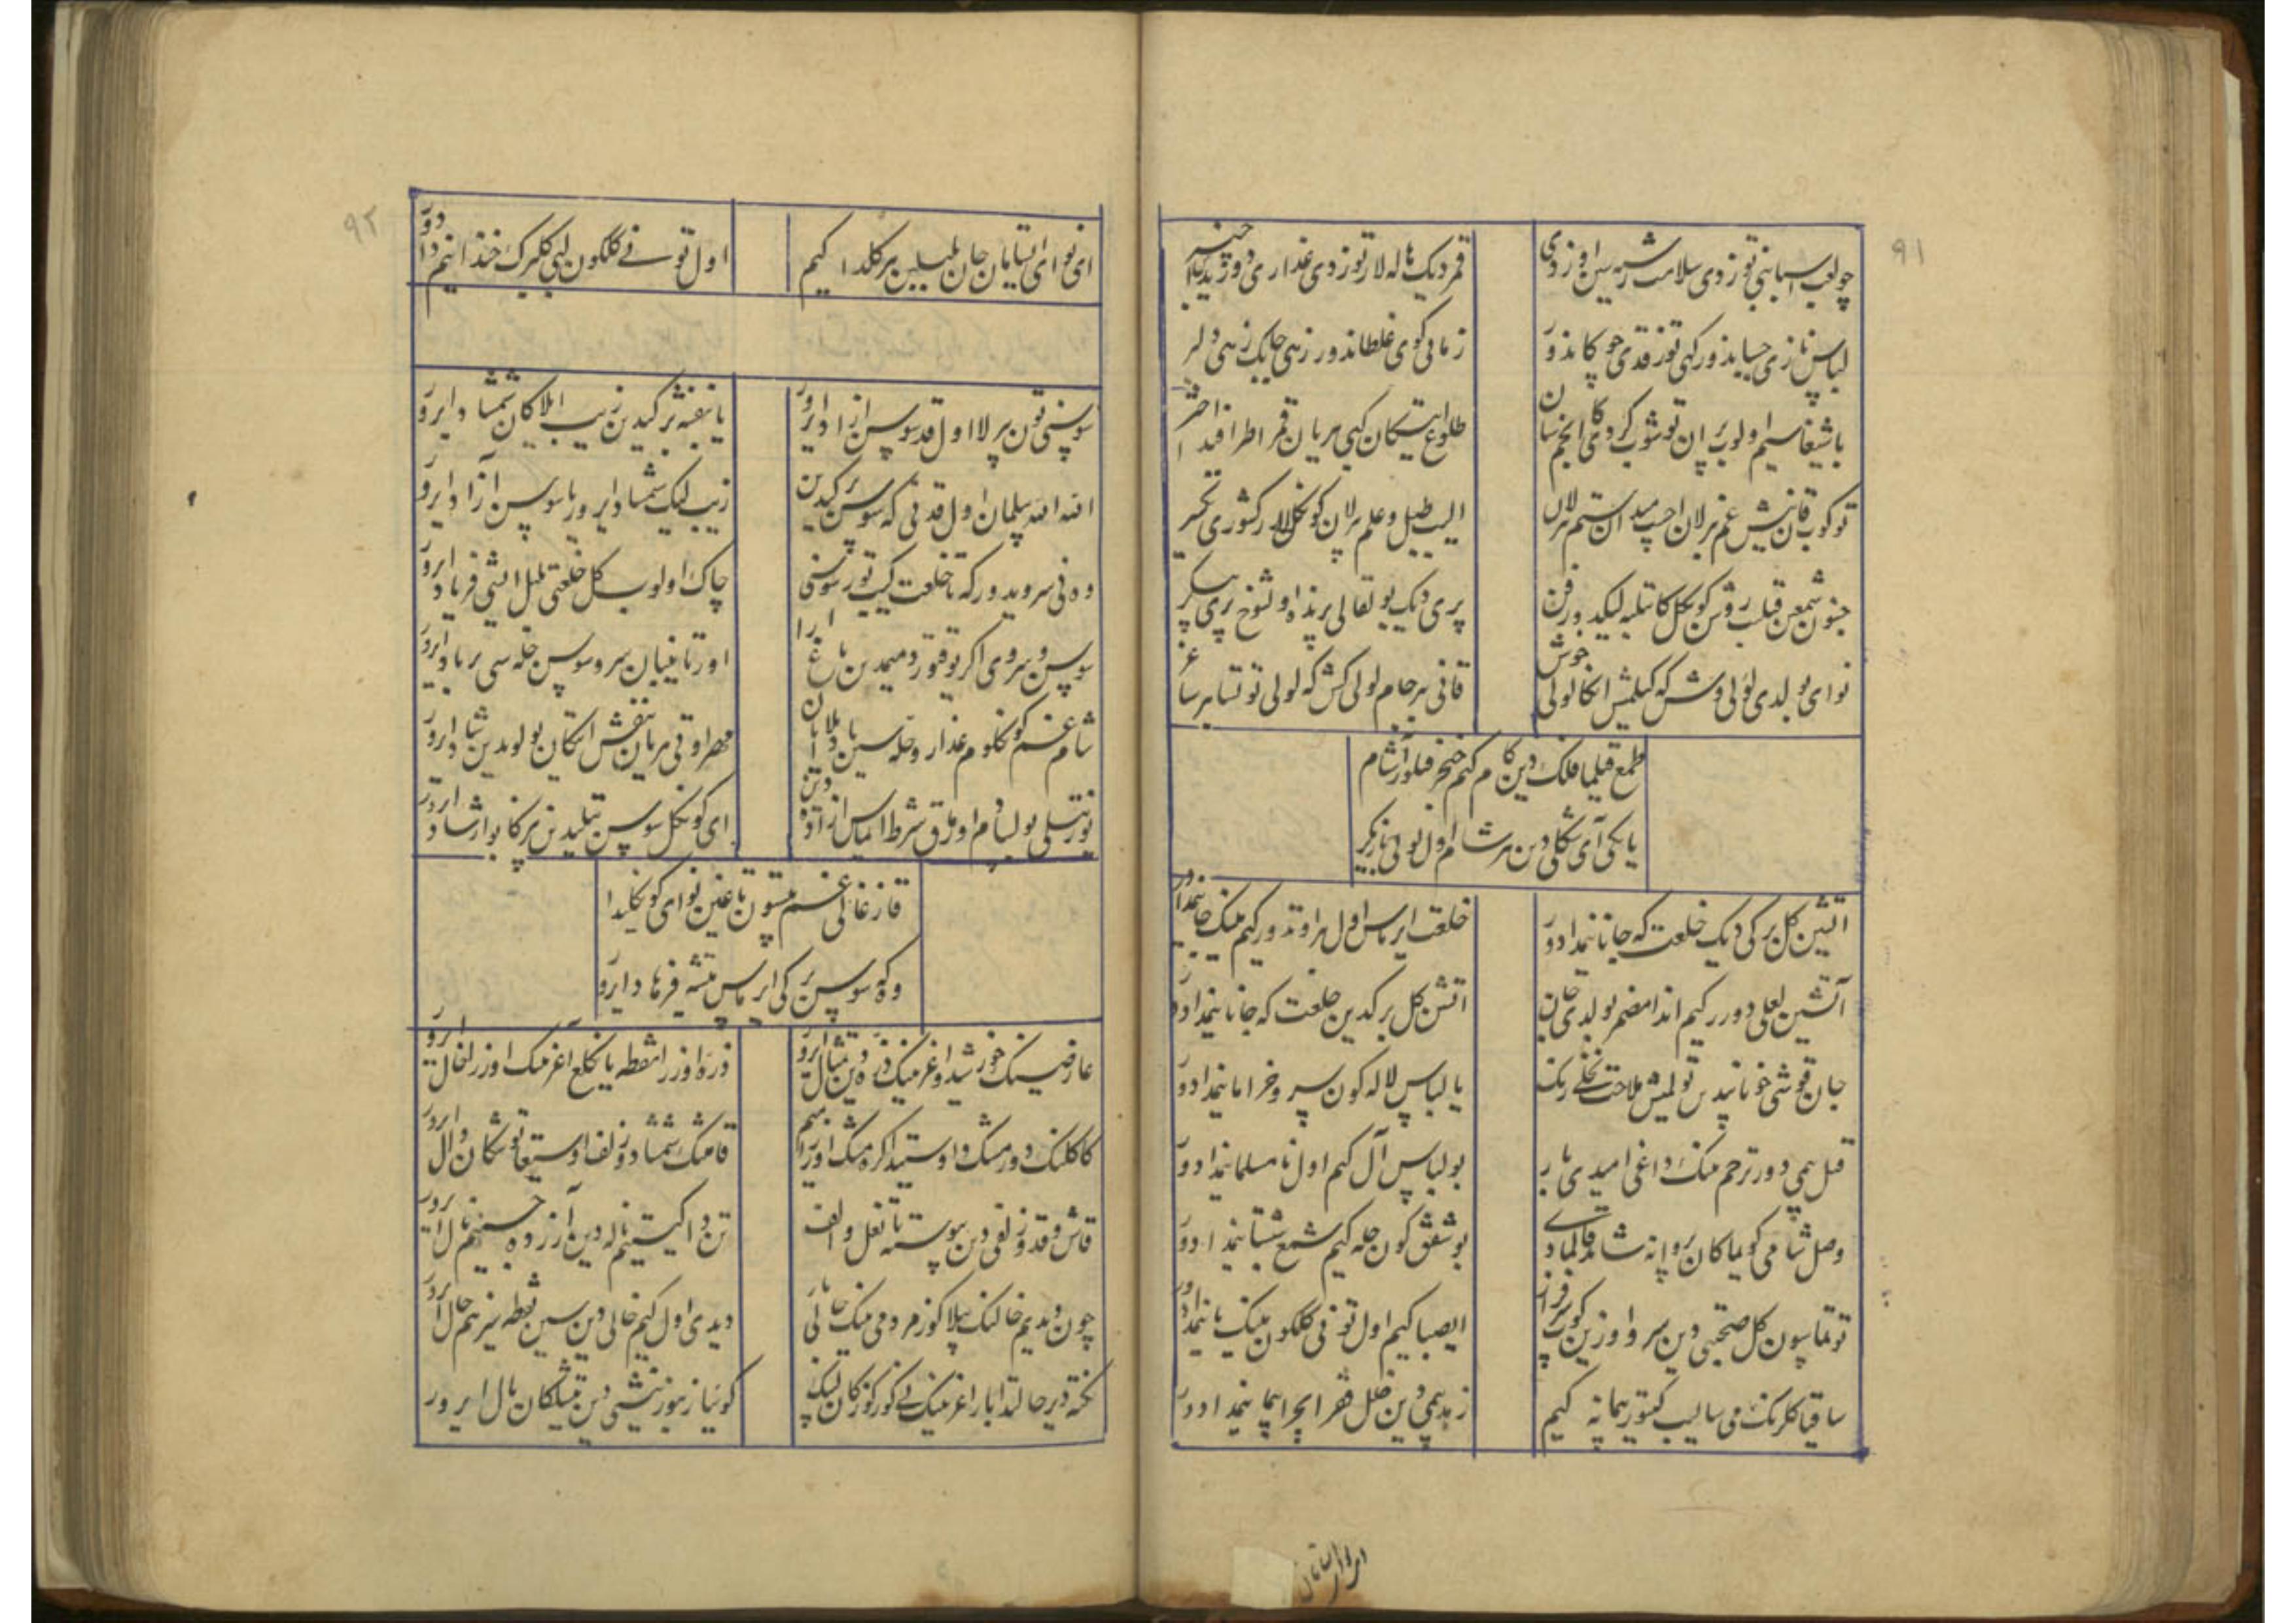 ۹۱
چولب اسبابنی توزدی سلامت رشته سین اوزدی
قمردیک هاله لار توزدی عذاری دوریدا چنبر
لباس نازی چسپاندور کهی توزقدی چوکاندور
زمانی کوی غلطاندور زهی چابک زهی دلبر
باشیغا سیم اولوب پران توشوب کردیکا انجم سان
طلوع ایتکان کبی هر یان قمر اطرافیدا اختر
توکوب قان نیش غم برلان آچیب میدان ستم برلان
الیب طبل و علم برلان کونکللار کشوری یکسر
جنون شمعین قیلیب روشن کونکل کا تلبه لیک دور فن
پری دیک بو لقالی پرنداه اول شوخ پری پیکر
نوای بولدی لولی وش که کیلمیش انکا لولی خوش
قانی بر جام لولی کش که لولی توتسا بر ساغر
طمع قیلما فلک دین کام کیم خنجر قیلور آشام
یانکی آی شکلی دین هر شام اول لولی بازیکر
آتشین کل برکی دیک خلعت که جانانیمدادور
خلعت ایرماس اول بر اوتدور کیم مینک جانیمدادور
آتشین لعلی دورر کیم اندا مضمر بولدی جان
آتشین کل برکیدین خلعت که جانانیمدادور
جان قوشی خونابیدین تولمیش ملاحت نخلی رنک
یا لباس لاله کون سرو خرامانیمدادور
قتل بیمی دور ترحم نینک داغی امیدی بار
بو لباس آل کیم اول نامسلمانیمدادور
وصل شامی کویماکان پروانه شاید قالمادی
بو شفق کون حله کیم شمع شبستانیمدادور
توتماسون کل صحبتی دین سرو اوزین کوپ سرفراز
ای صبا کیم اول توفی کلکون مینینک یانیمدادور
ساقیا کلرنک می سالیب کیتور پیمانه کیم
زهد بیمی دین خلل فقر ایچرا پیمانیمدادور
۹۲
ای نوای ایستامان جان بلبلین بر کلدا کیم
اول توفی کلکون لبی کلبرک خندانیمدادور
سوسنی تون بیرلا اول قد سوسن آزاد ایرور
یا بنفشه برکیدین زیب ایلاکان شمشاد ایرور
الله الله سیلمان اول قدنی که سوسن برکیدین
زیبلیک شمشاد ایرور یا سوسن آزاد ایرور
وه نی سرویدور که تا خلعت کییبتور سوسنی
چاک اولوب کل خلعتی بلبل ایشی فریاد ایرور
سوسن و سروی اکر یوقتور دمیمدین باغ ارا
اورتانیبان سرو و سوسن حله سی برباد ایرور
شام غم کونکلوم عذار و حله سین یاد ایلابان
مهر اوتی هر یان بنفش ایتکان بولوتدین شاد ایرور
تورت تیلی بولسا دم اورماق شرط ایماس آزاده دین
ای کونکل سوسن تیلیدین بیزکا بو ارشاد ایرور
قازغالی غم بیستون تاغین نوای کونکلیدا
وه که سوسن برکی ایرماس تیشه فرهاد ایرور
عارضینک خورشید و اغزینک ذره دین تمثال ایرور
ذره اوزرا نقطه یانکلیغ آغزینک اوزرا خال ایرور
کاکلینک دور مشک و اوستیدا کره مشک اوزرا هم
قامتینک شمشاد و زلف اوستیغا توشکان دال ایرور
قاش و قد و زلفی دین پیوسته تا نعل و الف
تن دا کیستیم ناله دین آزرده جسمیم نال ایرور
چون دیدیم خالینک بیلا کوز مردمی نینک حالی نی
دیدی اول کیم خالی دین سین نقطه سیز هم حال ایرور
نکته دیر حالتدا بار اغزینک نی کورکوزکان لبینک
کوییا زنبور نیشی دین تیشیلکان بال ایرور